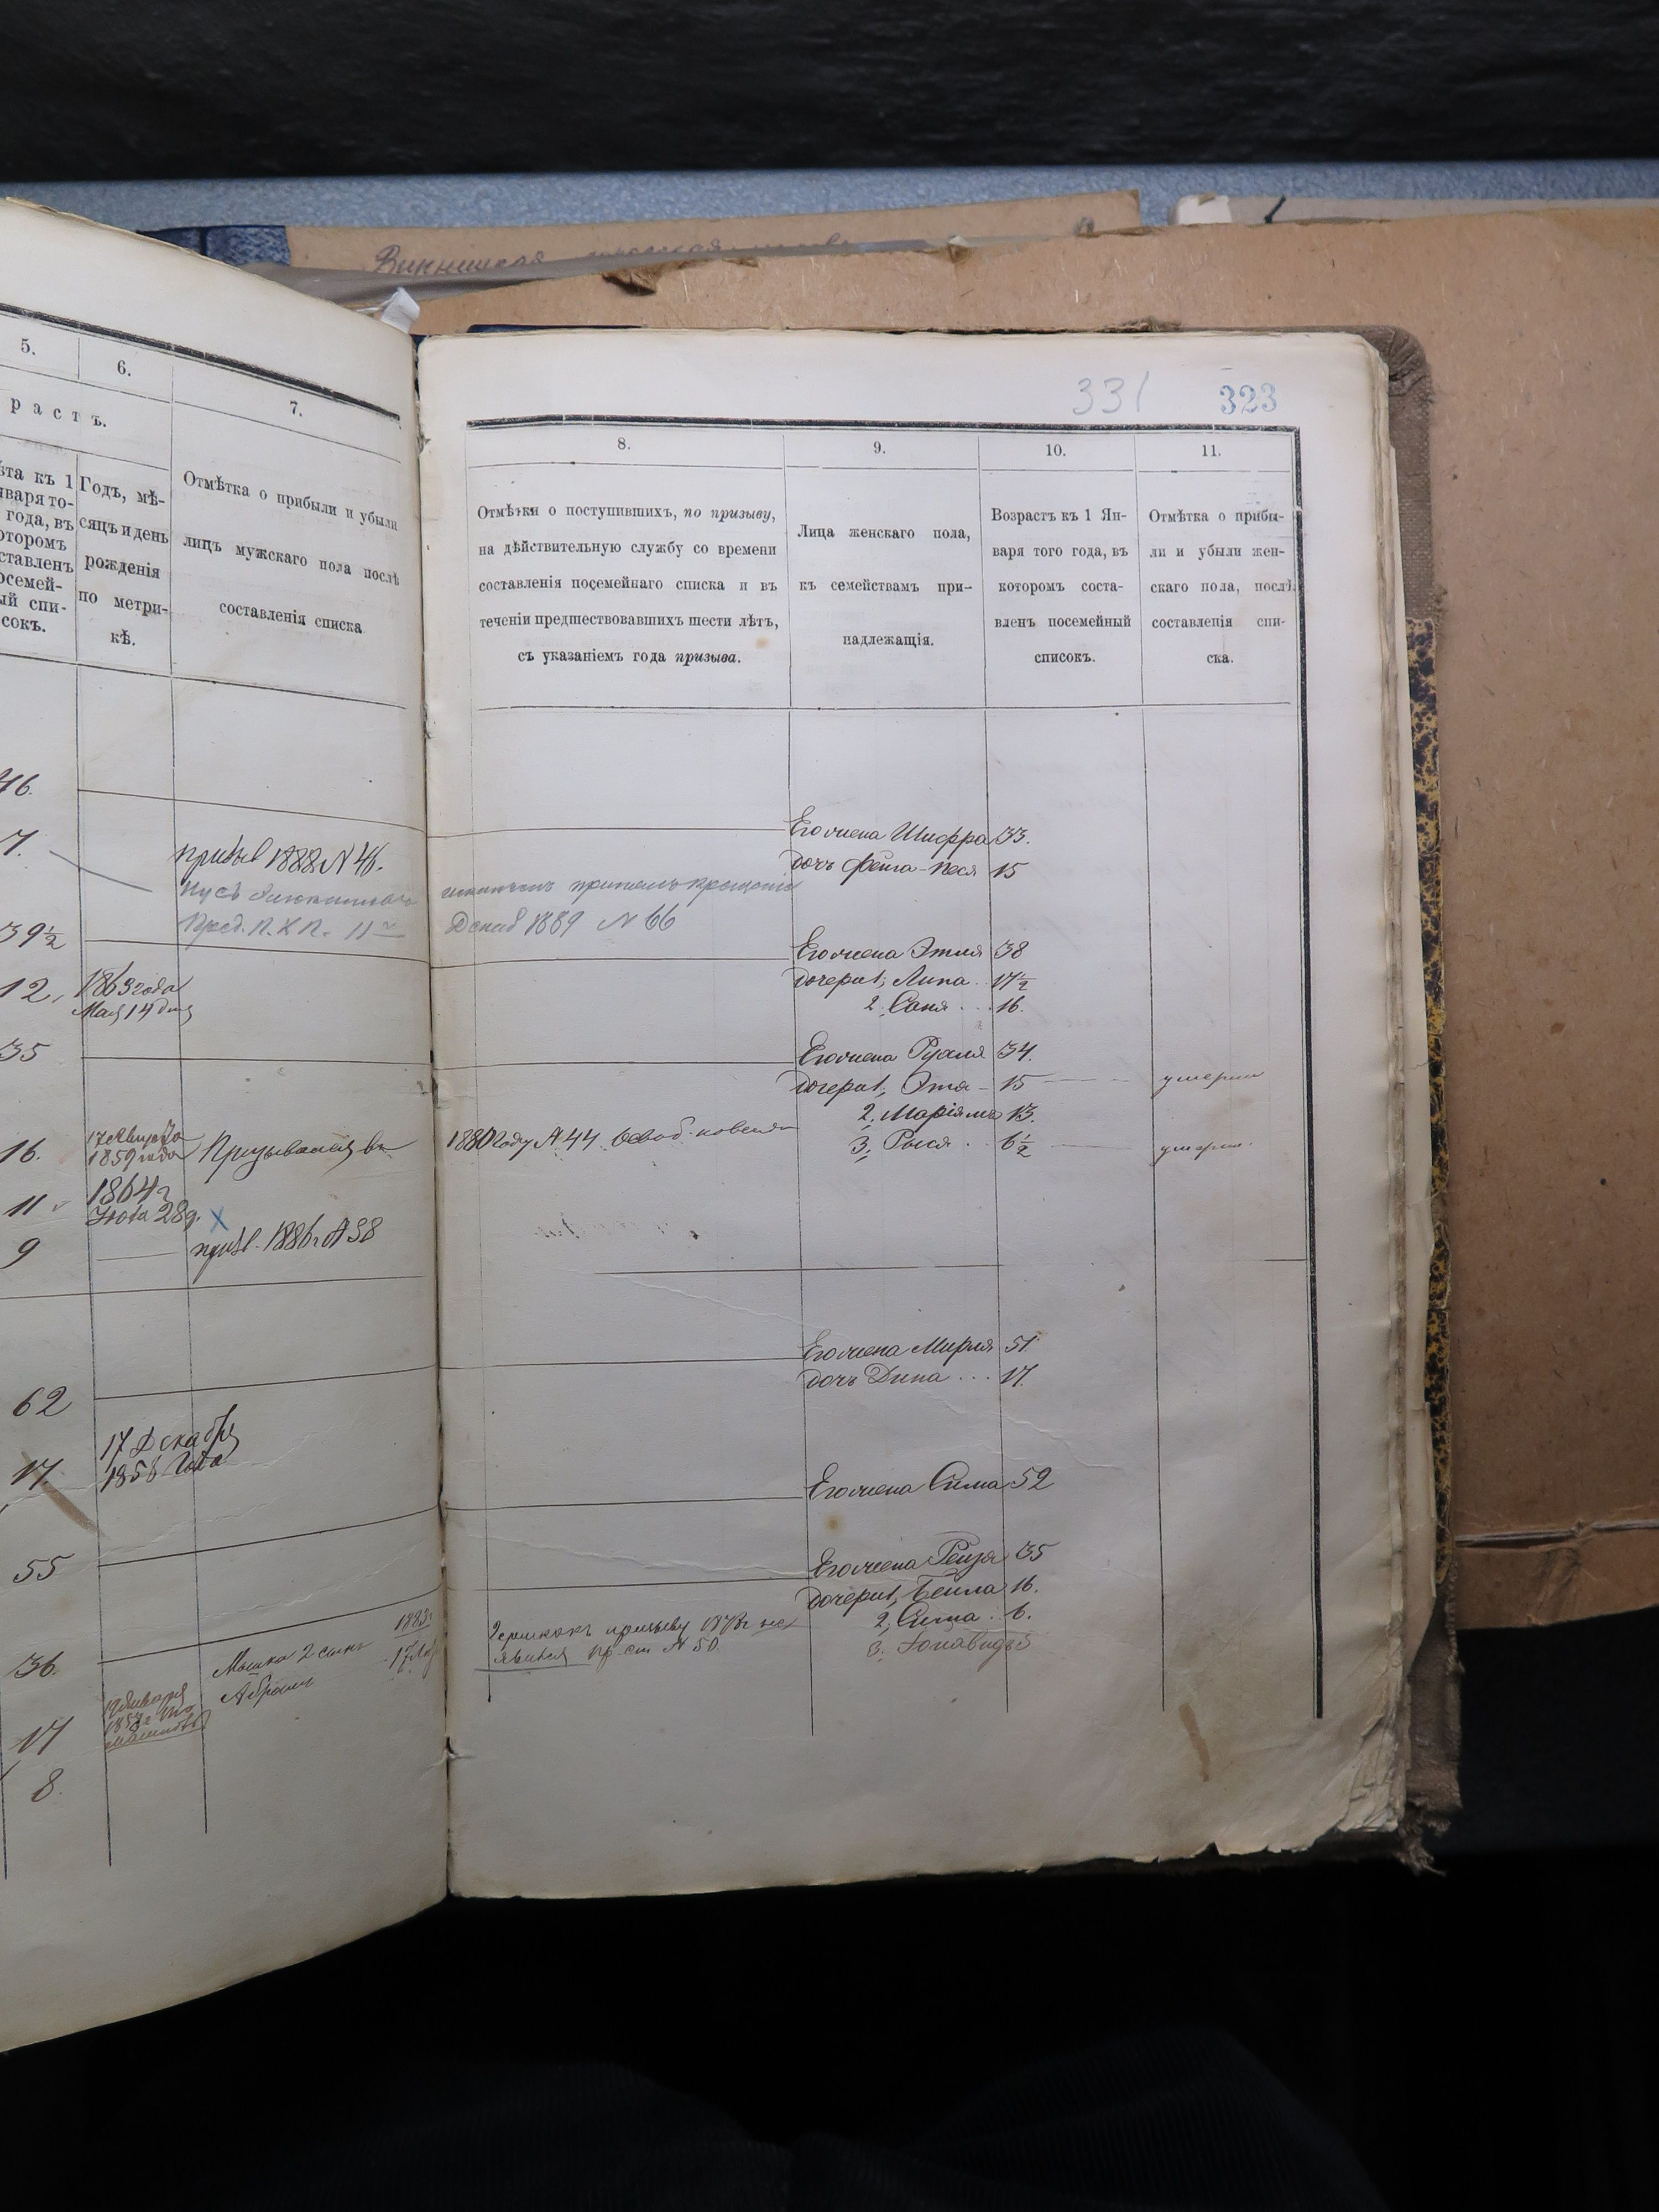 5.
6.
7.
растъ.
ѣта къ 1
нваря то-
года, въ
отромъ
ставленъ
осемей-
ый спи-
сокъ.
Годъ, мѣ-
сяцъ и день
рожденія
по метри-
кѣ.
Отмѣтка о прибыли и убыли
лицъ мужскаго пола послѣ
составленія списка
46.
7.
призыв 1888 N 46.
Пред. П. Х П. 11
39½
12
1863 года
Мая 14 дня
35
16.
17 Августа
1859 года
Призывался въ
11
1864 г
Июля 28 д.
9
призв. 1886 г N 38
62
17.
17 Декабря
1856 года
55
36.
Мошка 2 сынъ
1883 г
Абрамъ
17
8.
331
323
8.
9.
10.
11.
Отмѣтки о поступившихъ, по призыву,
на дѣйствительную службу со времени
составленія посемейнаго списка и въ
теченіи предшествовавшихъ шести лѣтъ,
съ указаніемъ года призыва.
Лица женскаго пола,
къ семействамъ при-
надлежащія.
Возрастъ къ 1 Ян-
варя того года, въ
котором соста-
вленъ посемейный
списокъ.
Отмѣтка о прибы-
ли и убыли жен-
скаго пола, послѣ
составленія спи-
ска.
Его жена Шифра 33.
дочь Фейга-Песя 15
1889 N 66
Его жена Этля 38
дочери 1, Липа 17½
2, Соня 16.
Его жена Рухля 34.
дочери 1, Эта 15 умерла
2, Маріямъ 13.
1880 году N 44
3, Рыся 6½ умерла
Его жена Мирля 51.
дочь Дина 17.
Его жена Сима 52
Его жена Рейза 35
дочери 1, Бейла 16.
призыву не
2, Сима 6.
явился N 50
3.